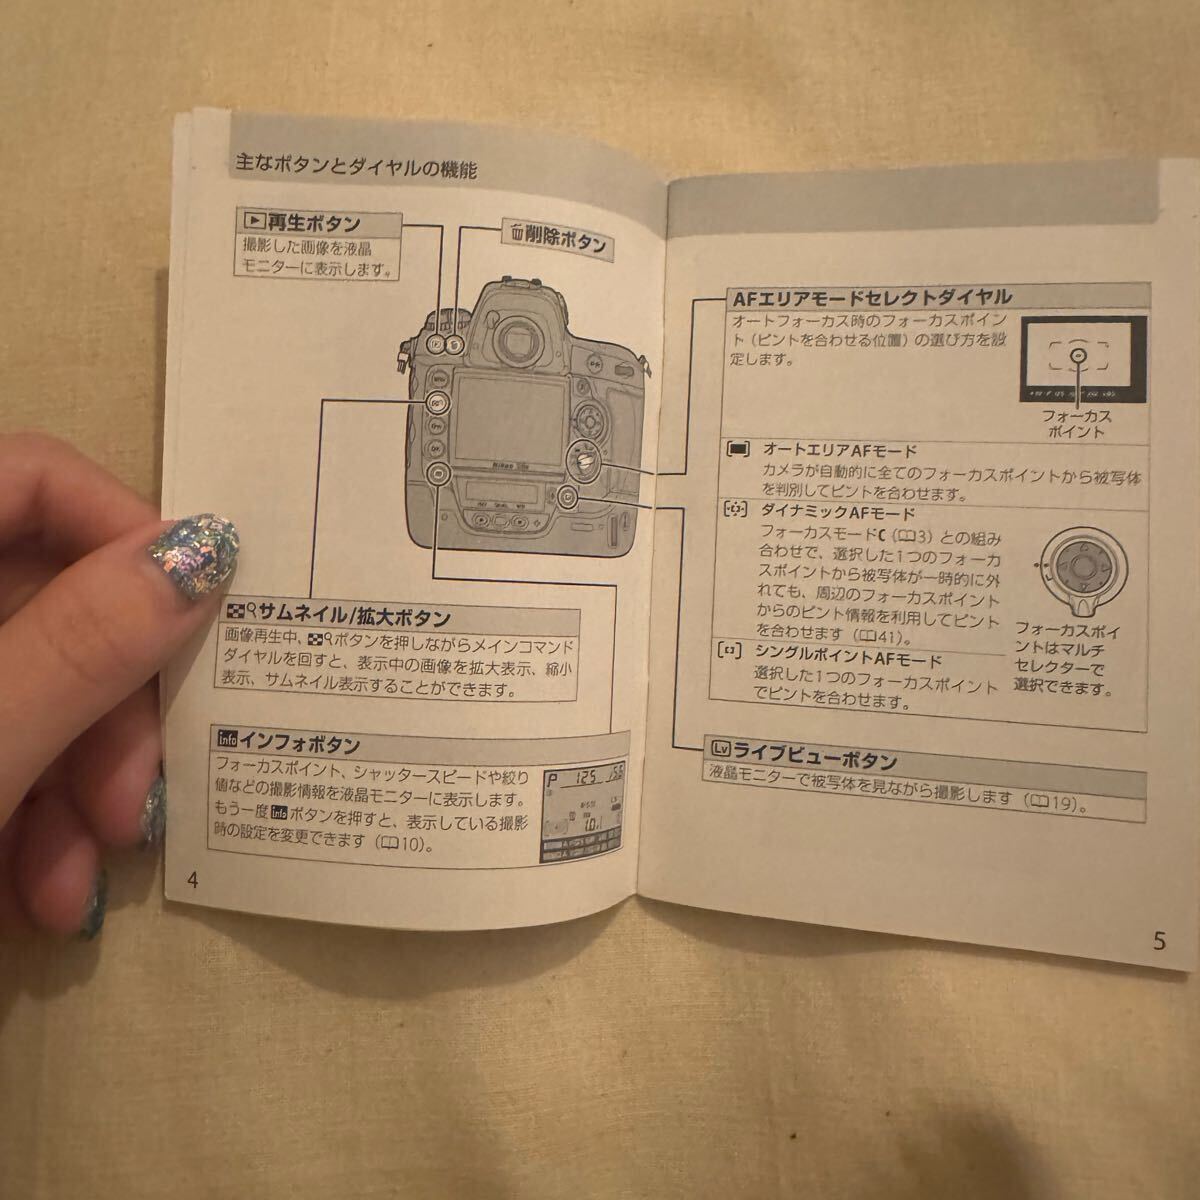 主なボタンとダイヤルの機能
再生ボタン
撮影した画像を液晶
モニターに表示します。
削除ボタン
Nikon
サムネイル/拡大ボタン
画像再生中、ボタンを押しながらメインコマンド
ダイヤルを回すと、表示中の画像を拡大表示、縮小
表示、サムネイル表示することができます。
info インフォボタン
フォーカスポイント、シャッタースピードや絞り
値などの撮影情報を液晶モニターに表示します。
もう一度 info ボタンを押すと、表示している撮影
時の設定を変更できます（10）。
P 125
4
AFエリアモードセレクトダイヤル
オートフォーカス時のフォーカスポイン
ト（ピントを合わせる位置）の選び方を設
定します。
フォーカス
ポイント
オートエリアAFモード
カメラが自動的に全てのフォーカスポイントから被写体
を判別してピントを合わせます。
ダイナミックAFモード
フォーカスモードC（3）との組み
合わせで、選択した1つのフォーカ
スポイントから被写体が一時的に外
れても、周辺のフォーカスポイント
からのピント情報を利用してピント
を合わせます（41）。
シングルポイントAFモード
選択した1つのフォーカスポイント
でピントを合わせます。
フォーカスポイ
ントはマルチ
セレクターで
選択できます。
Lv ライブビューボタン
液晶モニターで被写体を見ながら撮影します（19）。
5